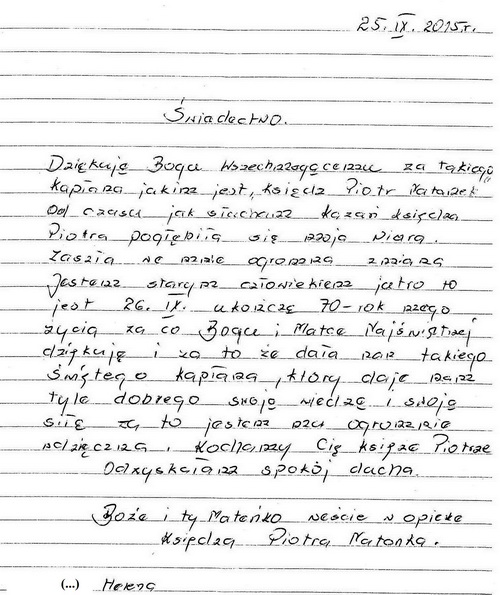 25. IX. 2015r.
Świadectwo.
Dziękuję Bogu Wszechmogącemu za takiego
kapłana jakim jest, ksiądz Piotr Natanek
Od czasu jak słucham kazań księdza
Piotra pogłębiła się moja wiara.
Zaszła we mnie ogromna zmiana
Jestem starym człowiekiem jutro to
jest 26. IX. ukończę 70-rok mego
życia za co Bogu i Matce Najświętrzej
dziękuję i za to że dała nam takiego
świętego kapłana, który daje nam
tyle dobrego swoją wiedzę i swoją
siłę za to jestem mu ogromnie
wdzięczna, Kochamy Cię księże Piotrze
Odzyskałam spokój ducha.
Boże i ty Mateńko weście w opiekę
księdza Piotra Natanka.
(...) Helena